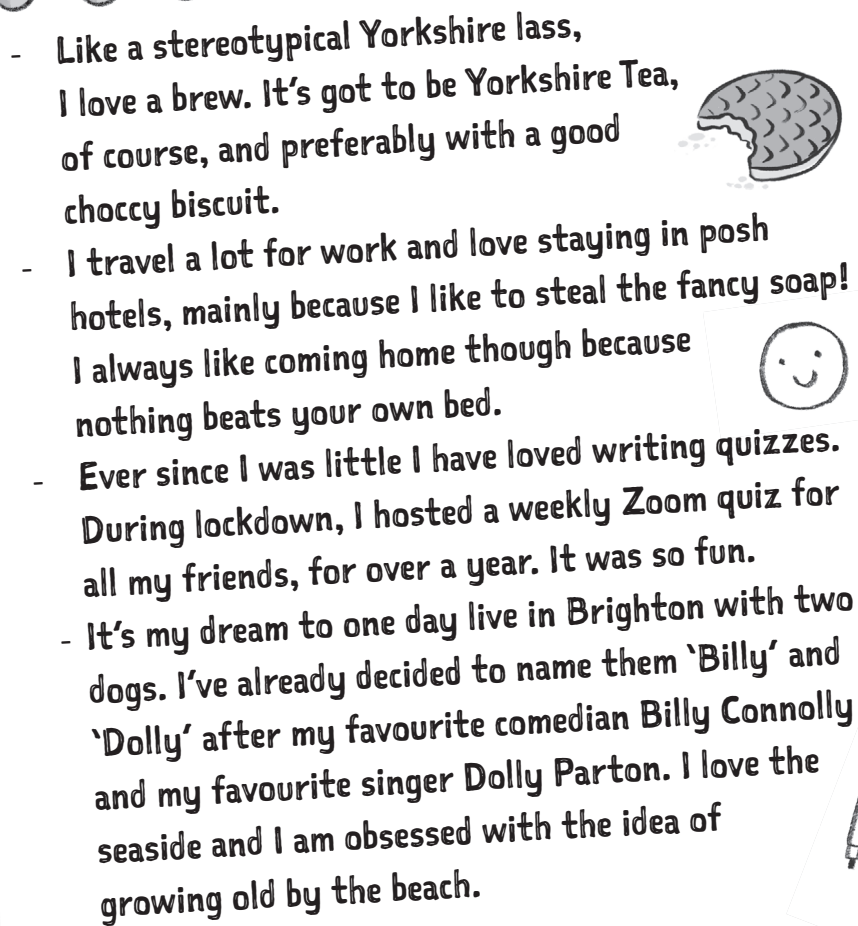 - Like a stereotypical Yorkshire lass,
I love a brew. It's got to be Yorkshire Tea,
of course, and preferably with a good
choccy biscuit.
- I travel a lot for work and love staying in posh
hotels, mainly because I like to steal the fancy soap!
I always like coming home though because
nothing beats your own bed.
- Ever since I was little I have loved writing quizzes.
During lockdown, I hosted a weekly Zoom quiz for
all my friends, for over a year. It was so fun.
- It's my dream to one day live in Brighton with two
dogs. I've already decided to name them ‛Billy' and
‛Dolly' after my favourite comedian Billy Connolly
and my favourite singer Dolly Parton. I love the
seaside and I am obsessed with the idea of
growing old by the beach.